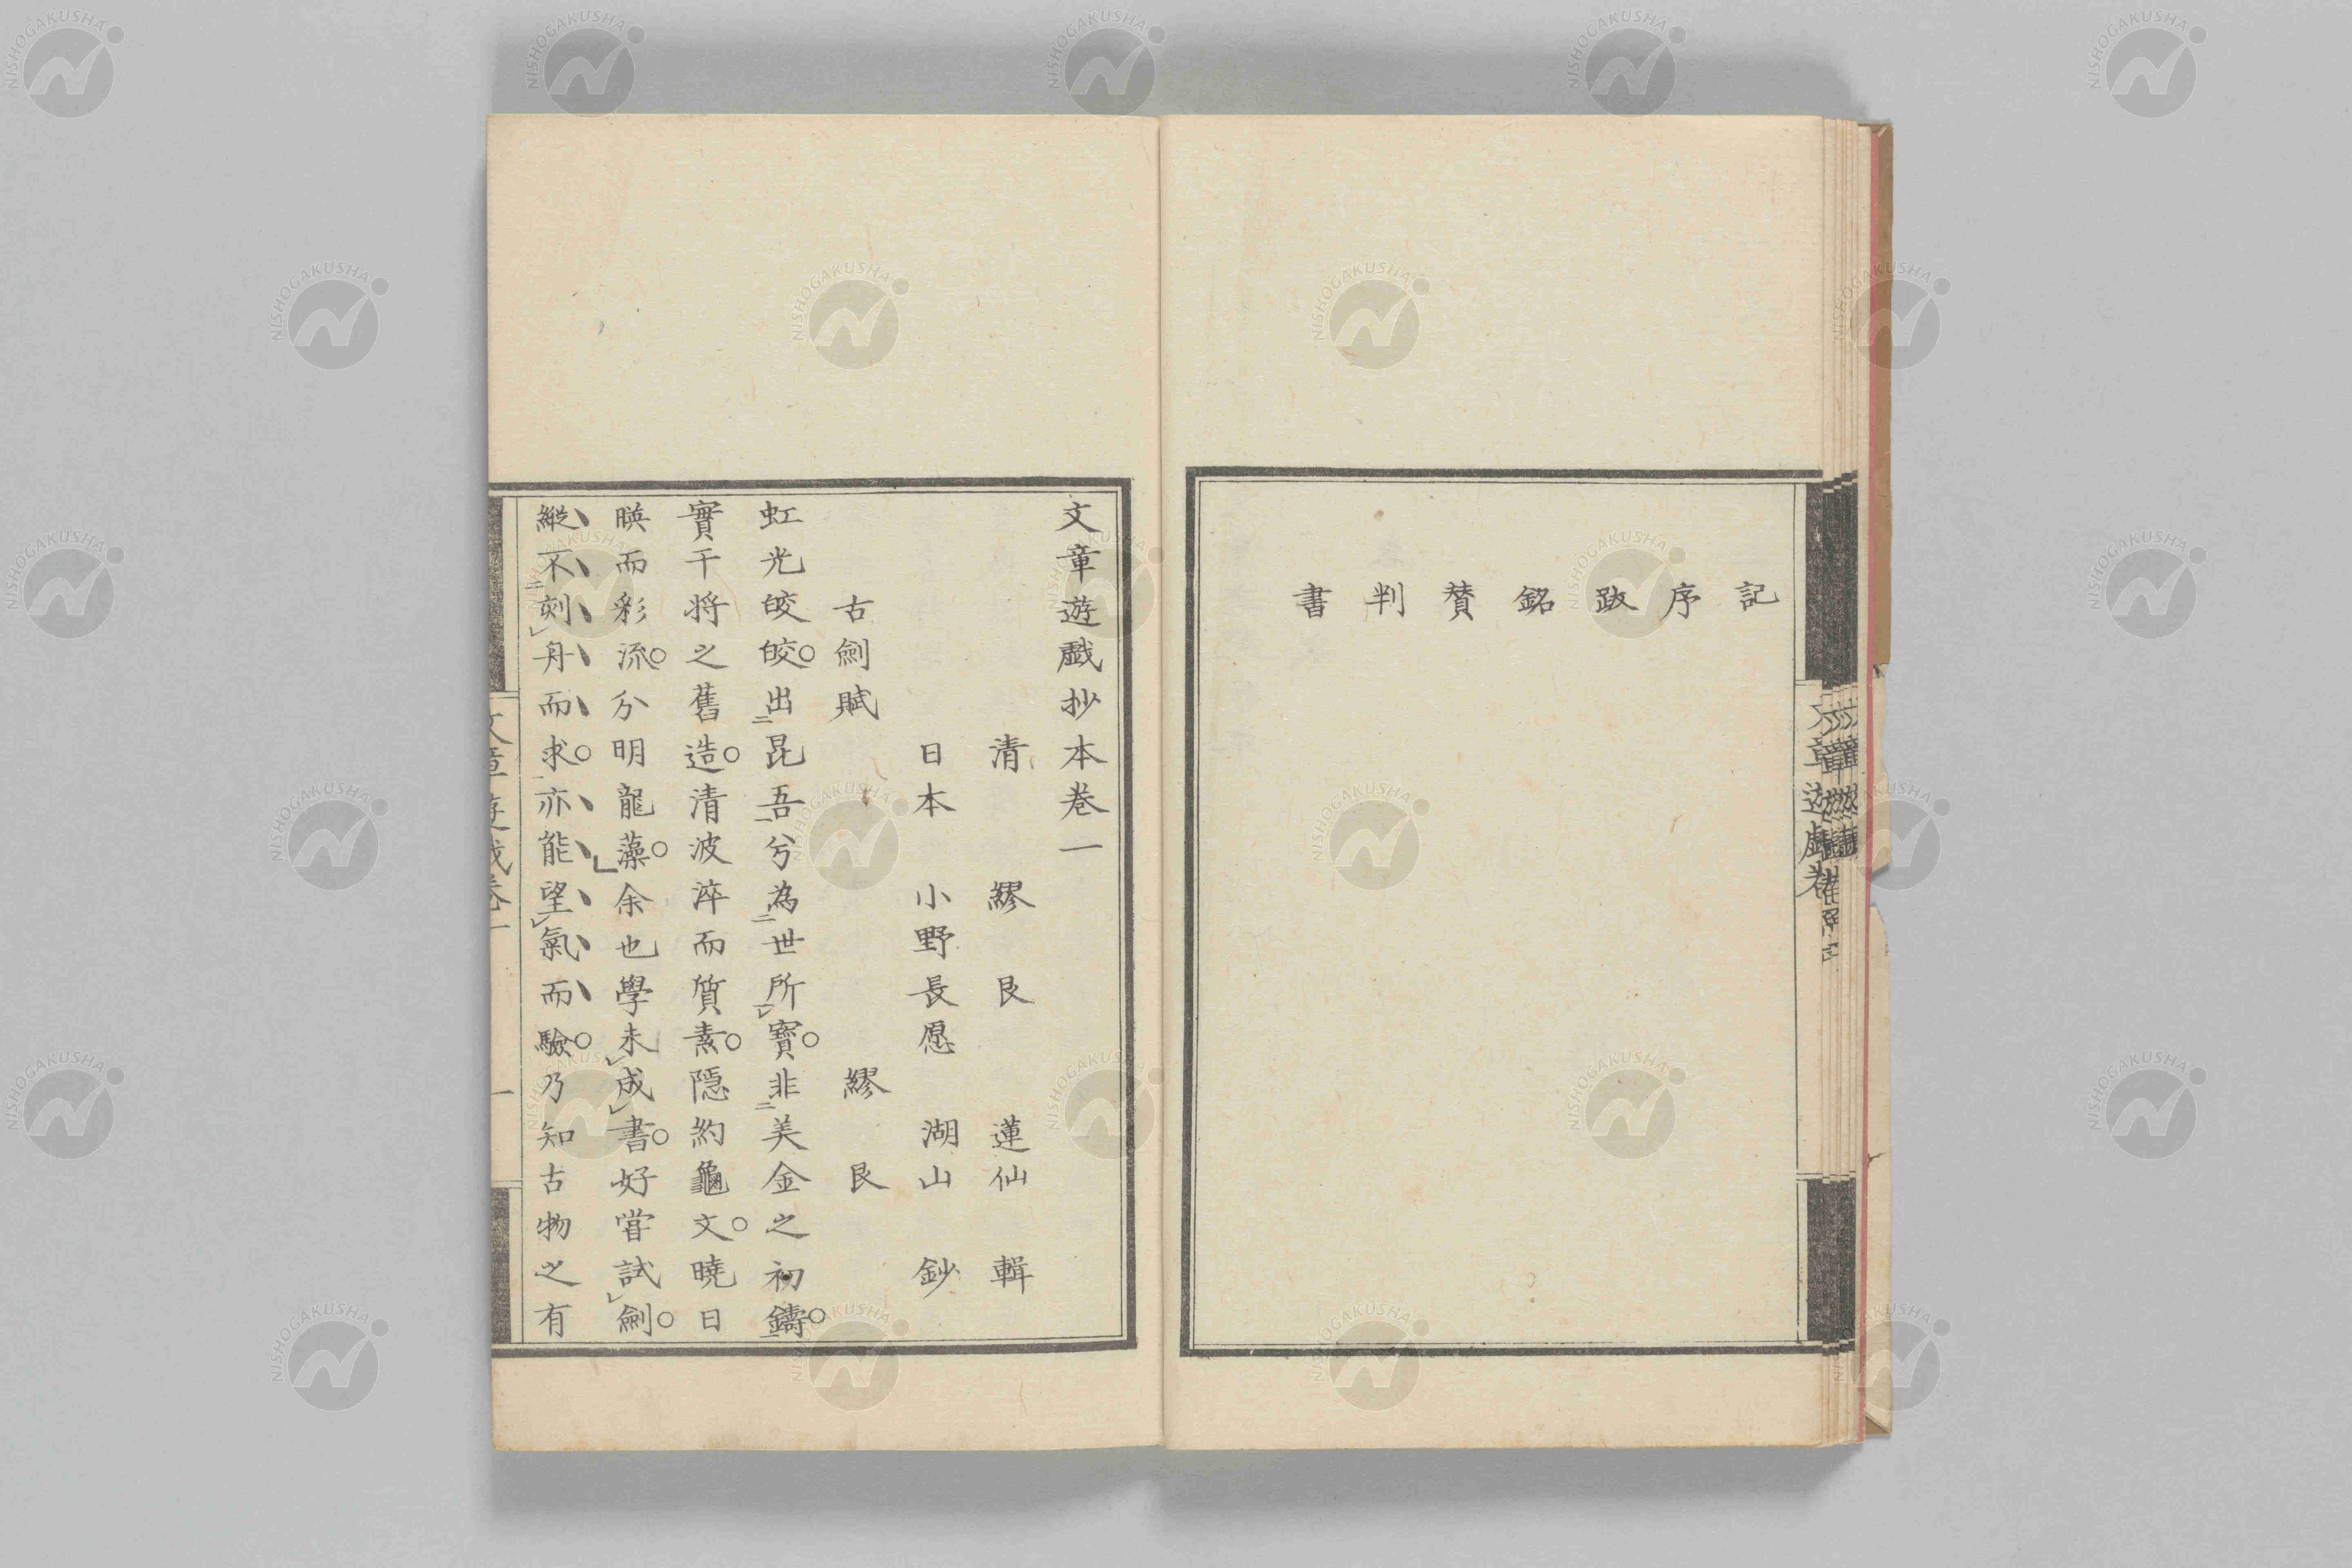 記
序
跋
銘
賛
判
書
文章遊戯抄本巻一
清 繆艮 蓮仙 輯
日本 小野長愿 湖山 鈔
古劍賦 繆艮
虹光皎皎。出昆吾兮為世所寶。非美金之初鑄。
實干将之舊造。清波淬而質素。隠約龜文。曉日
暎而彩流。分明龍藻。余也學未成書。好甞試劍。
縱不刻舟而求。亦能望氣而驗。乃知古物之有
文章遊戯巻一
一
NISHOGAKUSHA